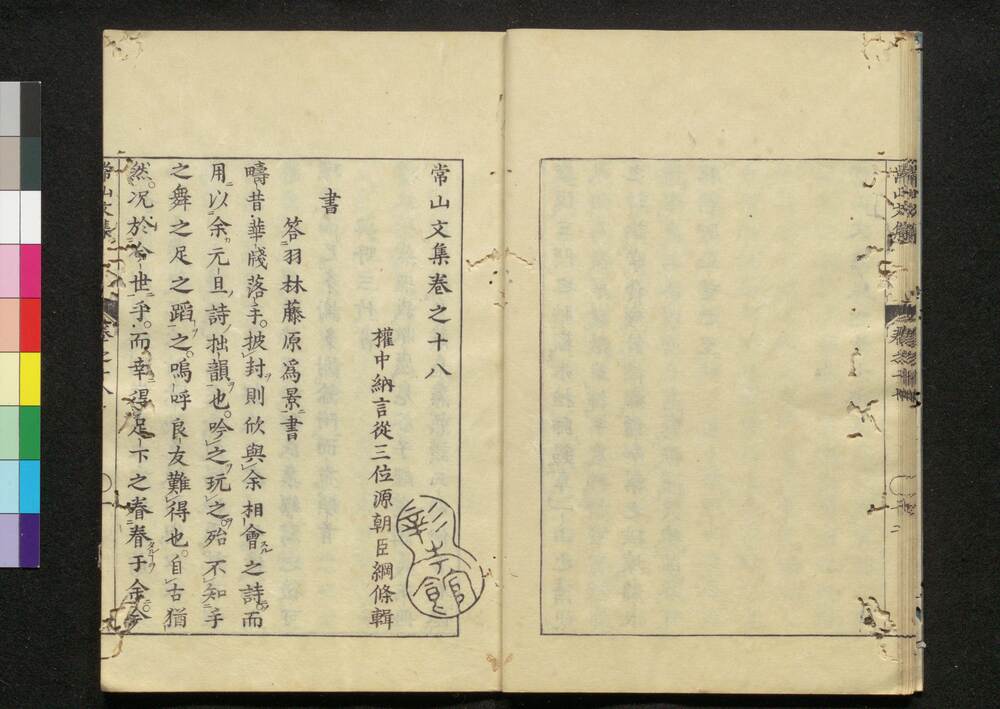 常山文集卷之十八
權中納言從三位源朝臣綱條輯
書
答羽林藤原爲景書
疇昔華牋落手。披封則欣與余相會之詩而
用以余元旦詩拙韻也。吟之玩之。殆不知手
之舞之足之蹈之。嗚呼良友難得也。自古猶
然。况於今世乎。而幸得足下之眷眷于余。余
常山文集
卷之十八
彰考館